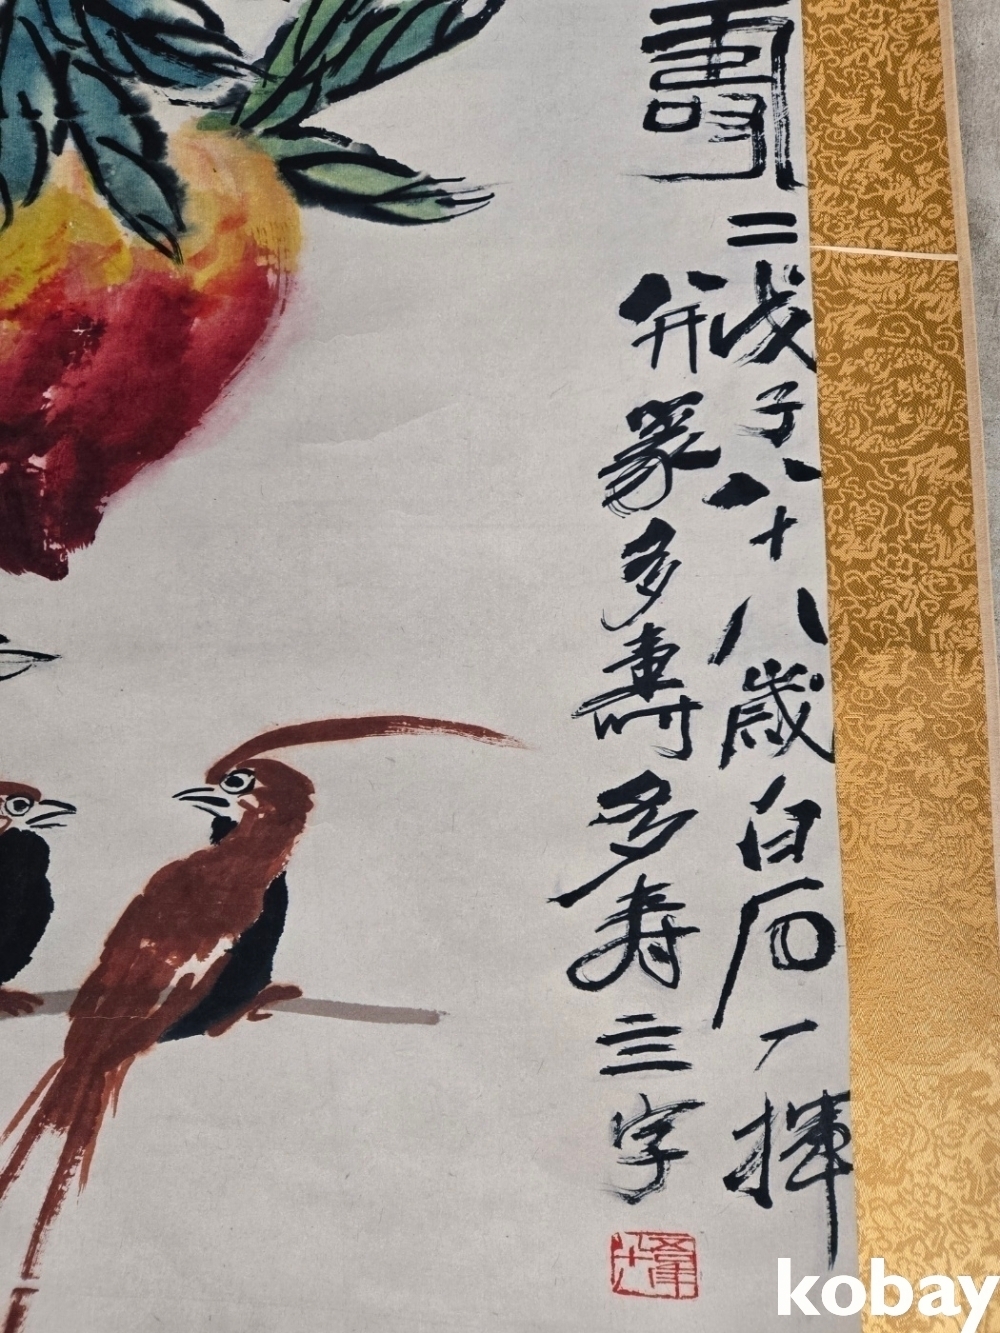 壽=
戊子八十八歲白石一揮
并篆多壽多寿三字
kobay